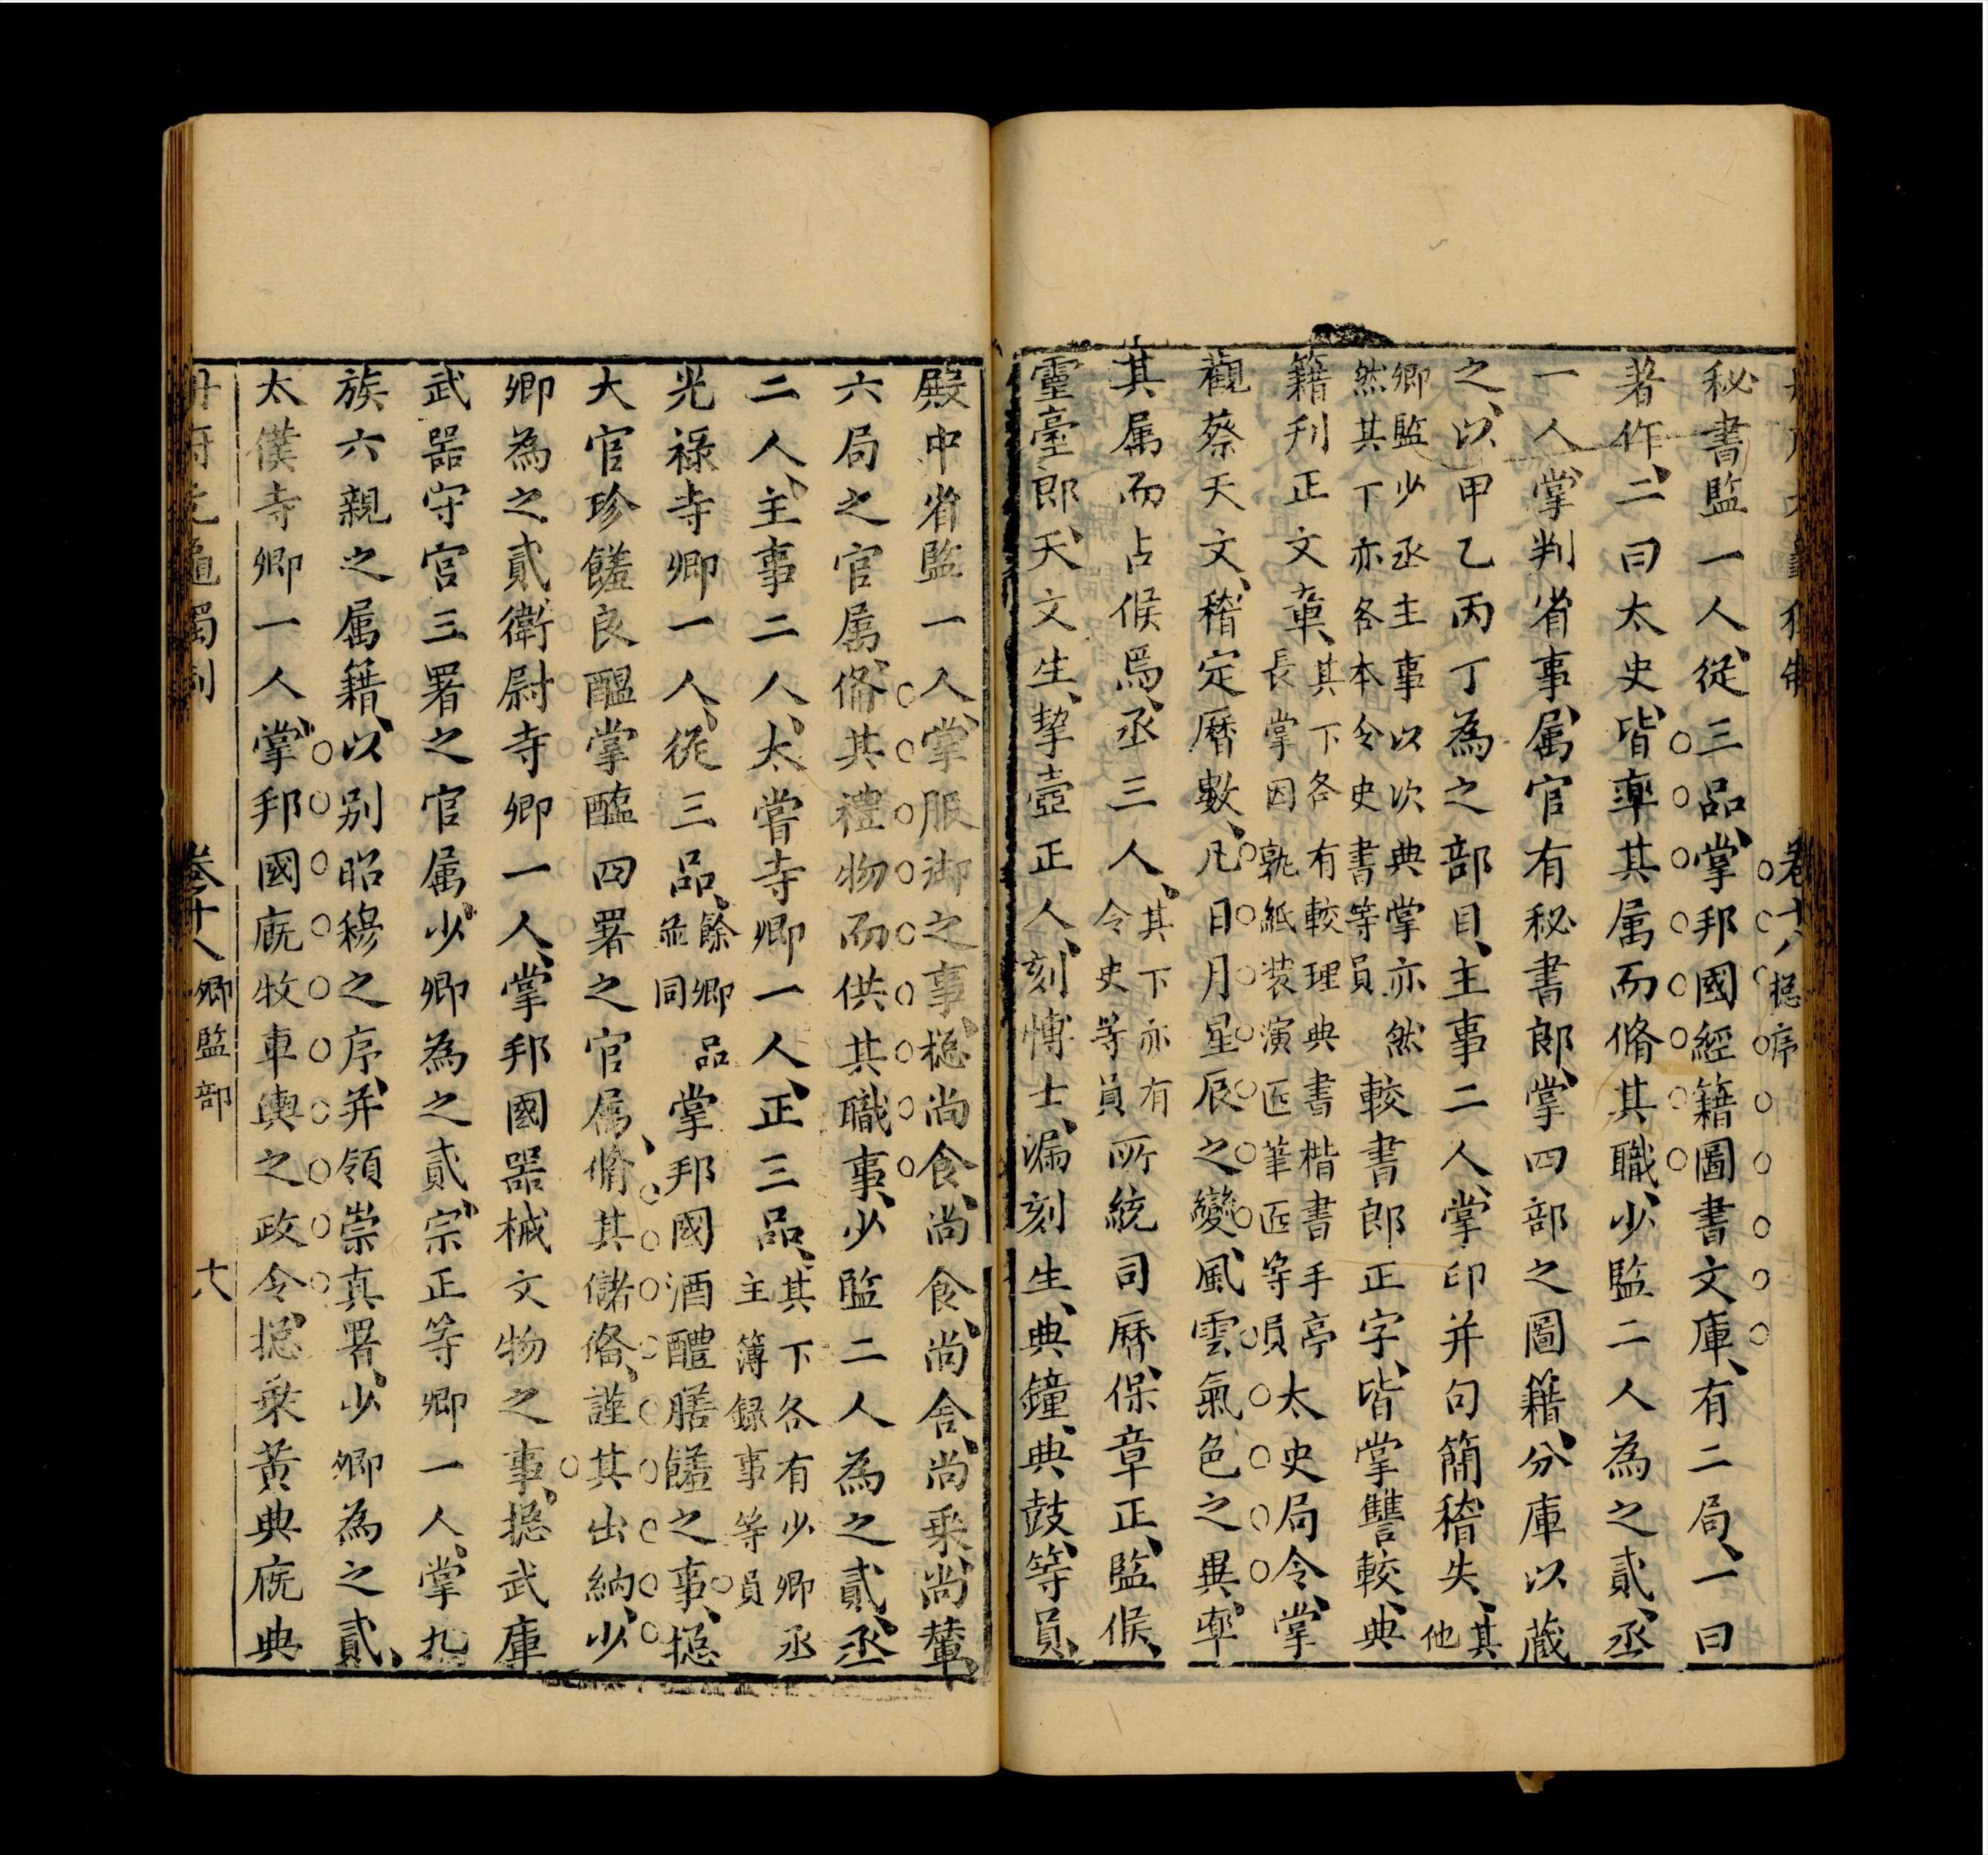 卷十八 總序
秘書監一人、從三品、掌邦國經籍圖書文庫、有二局、一曰
著作、二曰太史、皆率其属而脩其職、少監二人為之貳、丞
一人掌判省事、属官有秘書郎、掌四部之圖籍、分庫以蔵
之、以甲乙丙丁為之部目、主事二人、掌印并句簡稽失、其他
卿監少丞主事以次典掌亦然
然其下亦各本令史書等員 較書郎正字、皆掌讐較、典
籍刋正文章、其下各有較理典書楷書手亭
長掌因熟紙裝演匠筆匠等員 太史局令、掌
觀蔡天文、稽定曆數、凡日月星辰之變、風雲氣色之異、率
其属而占候焉、丞三人、其下亦有
令史等員 所統司曆、保章正、監候、
靈臺郎、天文生、挈壺正人、刻博士、漏刻生、典鐘、典鼓、等員、
殿中省監一人、掌服御之事、揔尚食、尚食、尚舎、尚乘、尚輦、
六局之官属、俻其禮物而供其職事、少監二人為之貳、丞
二人、主事二人、太嘗寺卿一人、正三品、其下各有少卿丞
主簿録事等員
光禄寺卿一人、從三品、餘卿品
並同 掌邦國酒醴膳饈之事、揔
大官珍饈良醖掌醢四署之官属、脩其儲俻、謹其出納、少
卿為之貳、衛尉寺卿一人、掌邦國器械文物之事、揔武庫
武器守宫三署之官属、少卿為之貳、宗正等卿一人、掌九
族六親之属籍、以别昭穆之序、并領崇真署、少卿為之貳、
太僕寺卿一人、掌邦國廐牧車輿之政令、揔乘黃典廐典
卷之十八 卿監部 十八